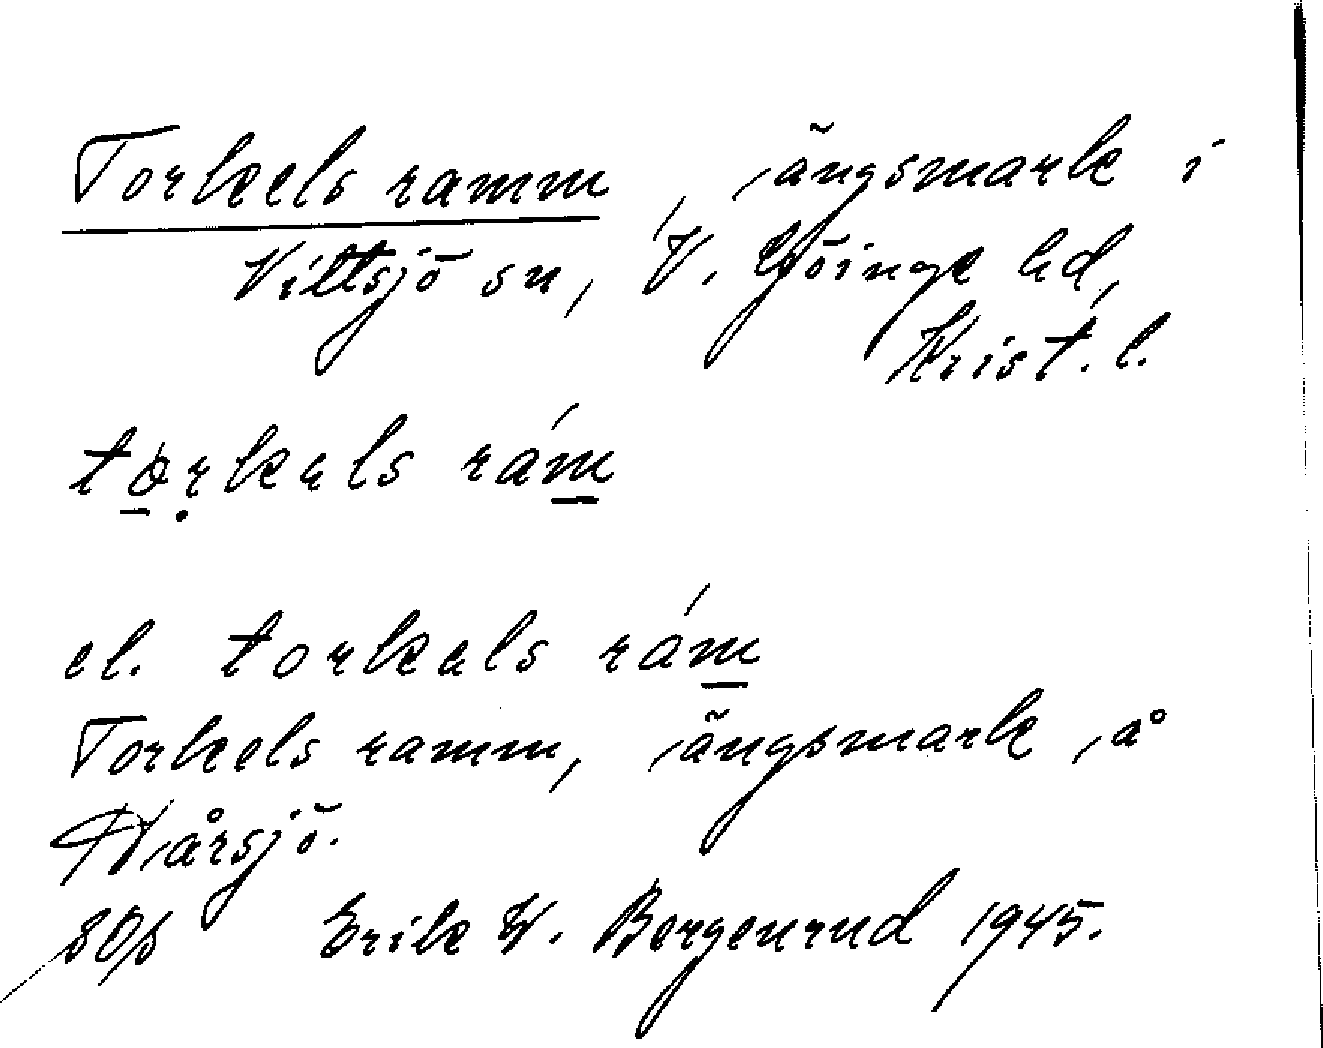 Torkels ramm, ängsmark i
Vittsjö sn, V. Göinge hd,
Krist. l.
tọrkals rám
el. torkals rám
Torkels ramm, ängsmark å
Hårsjö.
Erik W. Bergenrud 1945.